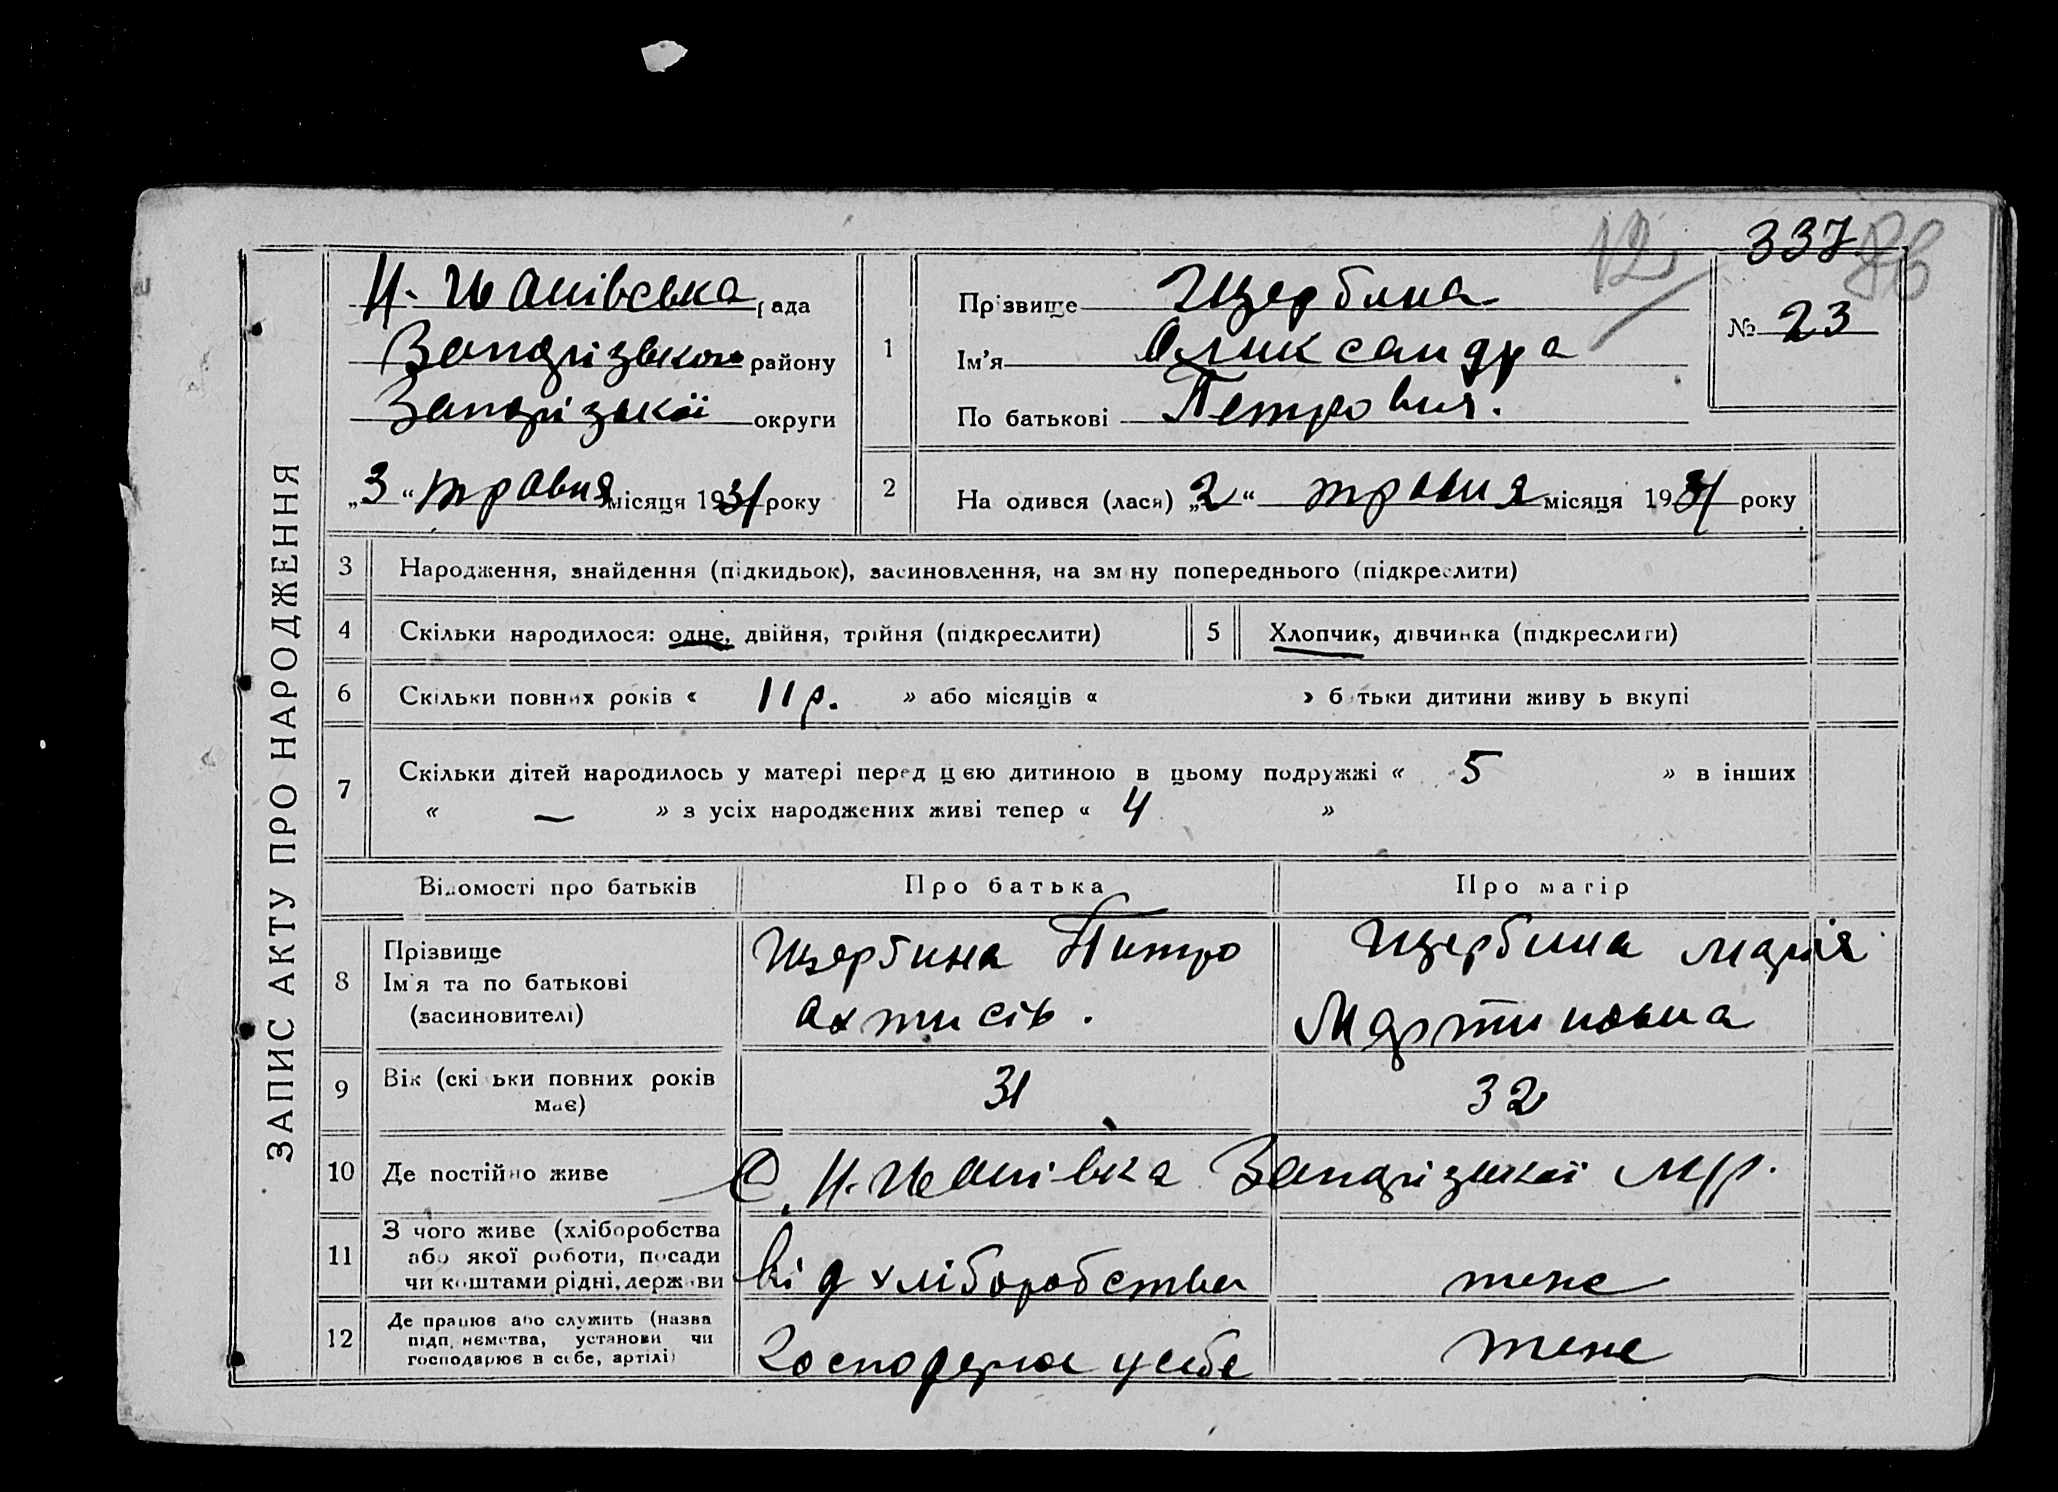 ЗАПИС АКТУ ПРО НАРОДЖЕННЯ
337
12
рада
Запорізького району
Запорізької округи
„3“ травня місяця 1931 року
1
Прізвище Щербина
Ім'я Олександра
По батькові Петрович.
№ 23
2
На одився (лася) „2“ травня місяця 1931 року
3 Народження, знайдення (підкидьок), засиновлення, на зміну попереднього (підкреслити)
4 Скільки народилося: одне, двійня, трійня (підкреслити) 5 Хлопчик, дівчинка (підкреслити)
6 Скільки повних років « 11 р. » або місяців « » б тьки дитини живу ь вкупі
7 Скільки дітей народилось у матері перед цією дитиною в цьому подружжі « 5 » в інших
« — » з усіх народжених живі тепер « 4 »
Відомості про батьків Про батька Про матір
8 Прізвище
Ім'я та по батькові
(засиновителі)
Щербина Питро
Щербина Марія
Мартиновна
9 Вік (скі ьки повних років
має)
31 32
10 Де постійно живе С. Запорізької М/р.
11 З чого живе (хліборобства
або якої роботи, посади
чи коштами рідні, держави
Від хліборобства теж
12 Де працює або служить (назва
підп. иємства, установи чи
господарює в себе, артілі)
Господарює у себе теж